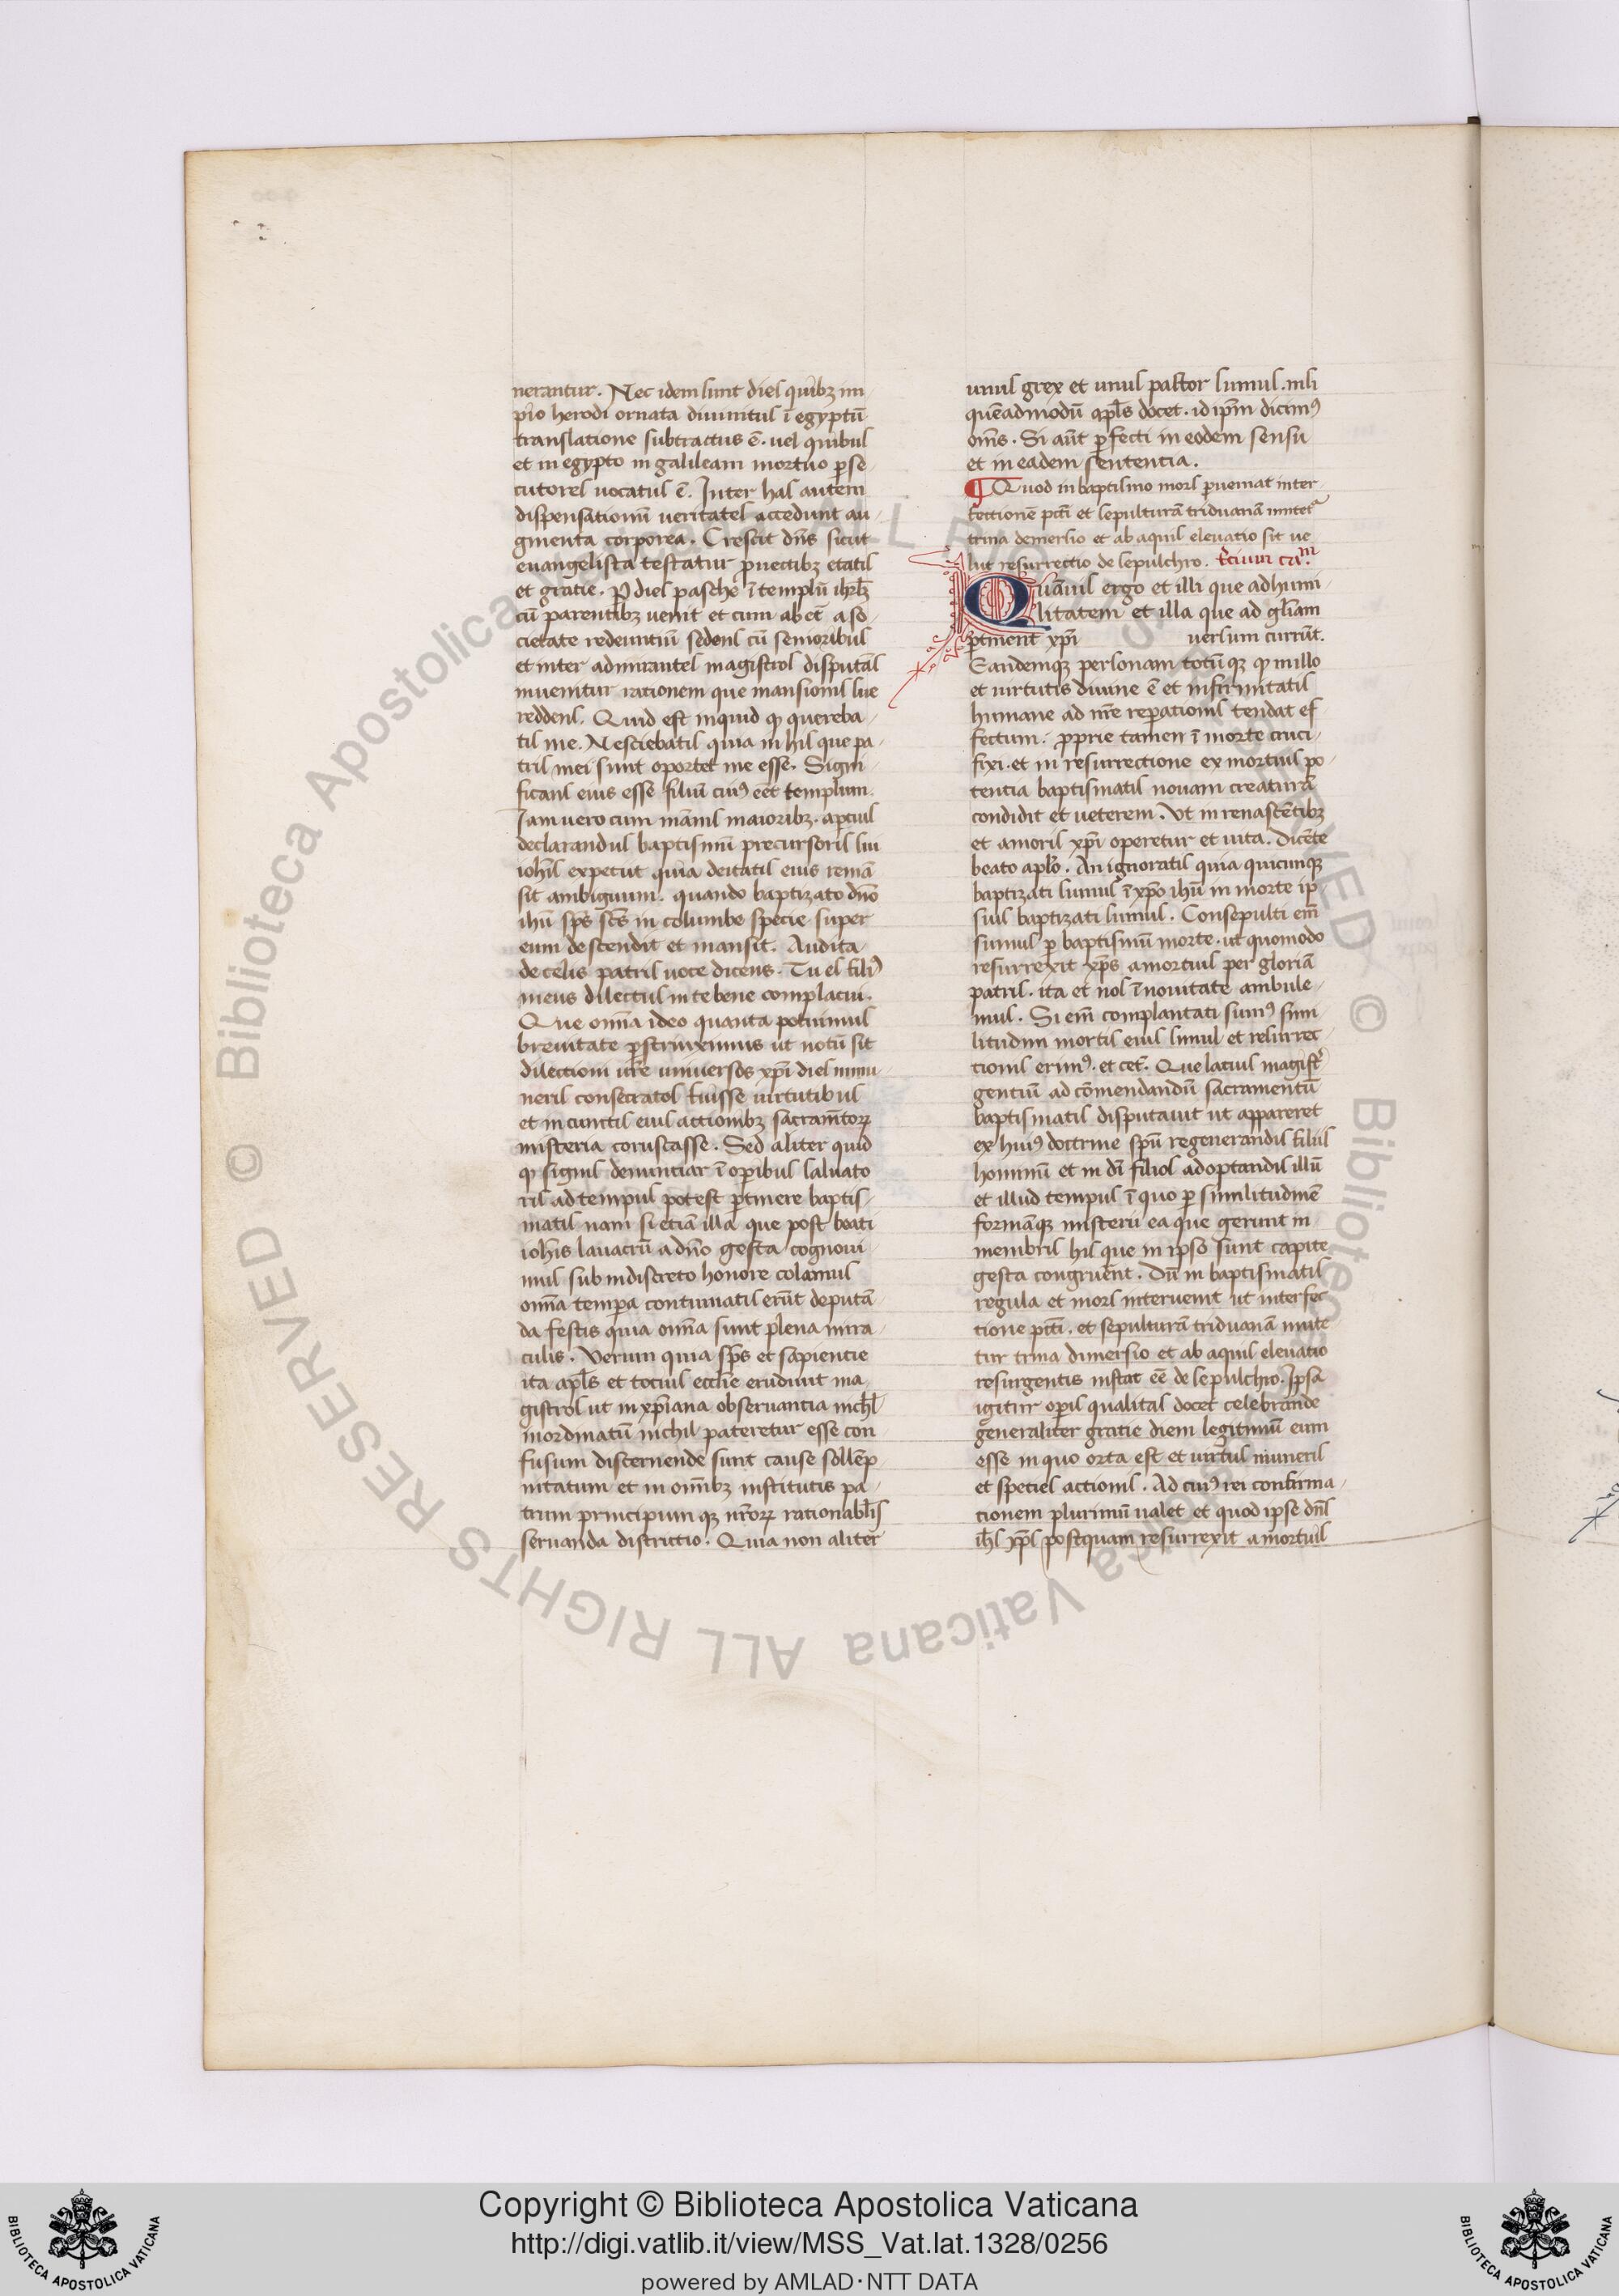 nerantur. Nec idem sunt dies quibꝫ im
pio herodi ornata diuinitus ī egyptū
translatione subtractus ē. uel quibus
et in egypto in galileam mortuo ꝑse
cutores uocatus ē. Inter has autem
dispensationū ueritates accedunt au
gmenta corporea. Crescit dn̄s sicut
euangelista testatur ꝓuectibꝫ etatis
et gratie. dies pasche ī templū
cū parentibꝫ uenit et cum abēt a so
cietate redeuntiū sedens cū senioribus
et inter admirantes magistros disputās
inuenitur rationem que mansionis sue
reddens. Quid est inquid ꝙ quereba
tis me. Nesciebatis quia in his que pa
tris mei sunt oportet me esse. Signi
ficans eius esse filiū cuiꝰ eēt templum.
Iam uero cum maioribꝫ. aptius
declarandus baptismū precursoris sui
iohīs expetit quia deitatis eius remā
sit ambiguum. quando baptizato dn̄o
ihū sp̄s sc̄s in columbe specie super
eum descendit et mansit. Audita
de celis patris uoce dicens. Tu es filiꝰ
meus dilectus in te bene complacui.
Que om̄ia ideo quanta potuimus
breuitate ꝑstrinximus ut notū sit
dilectioni ur̄e uniuersos xp̄i dies innu
neris consecratos fuisse uirtutibus
et in cunctis eius actionibꝫ sacram̄torꝝ
misteria coruscasse. Sed aliter quid
ꝙ signis denunciar ī oꝑibus saluato
ris ad tempus potest ꝑtinere baptis
matis nam si etiā illa que post beati
ioh̄is lauacrū a dn̄o gesta cognoui
mus sub indiscreto honore colamus
om̄ia tempa continuatis erūt deputā
da festis quia om̄ia sunt plena mira
culis. Verum quia sp̄s et sapientie
ita apl̄s et tocius eccl̄ie erudiunt ma
gistros ut in xp̄iana obseruantia nichl̄
inordinatū nichil pateretur esse con
fusum discernende sunt cause sollēp
nitatum et in om̄ibꝫ institutis pa
trum principum qꝫ nr̄orꝝ rationabl̄is
seruanda districtio. Quia non aliter
unus grex et unus pastor sumus. nisi
quēadmodū apl̄s docet. id ip̄m dicimꝰ
om̄s. Si aūt ꝑfecti in eodem sensu
et in eadem sententia.
¶ Quod in baptismo mors ꝓueniat inter
fectionē pcc̄i et sepulturā triduanā imitetᵃ
trina demersio et ab aquis eleuatio sit ue
lut resurrectio de sepulchro. t̄cium caᵐ.
Quāuis ergo et illi que ad humi
litatem et illa que ad gl̄iam
ꝑtinent xp̄i uersum currūt.
Eandemqꝫ personam totūqꝫ ꝙ in illo
et uirtutis diuine ē et infirmitatis
humane ad nr̄e reꝑationis tendat ef
fectum. ꝓprie tamen ī morte cruci
fixi. et in resurrectione ex mortuis po
tentia baptismatis nouam creaturā
condidit et ueterem. Vt in renascētibꝫ
et amoris xp̄i operetur et uita. Dicēte
beato aplo. An ignoratis quia quicunqꝫ
baptizati sumus ī xp̄o ihū in morte ip
sius baptizati sumus. Consepulti em̄
sumus ꝑ baptismū morte. ut quomodo
resurrexit xp̄s a mortuis per gloriā
patris. ita et nos ī nouitate ambule
mus. Si em̄ complantati sumꝰ simi
litudini mortis eius simul et resurrec
tionis erimꝰ. et cet̄. Que latius magist̄
gentiū ad cōmendandū sacramentū
baptismatis disputauit ut appareret
ex huiꝰ doctrine sp̄u regenerandis filiis
hominū et in dī filios adoptandis illū
et illud tempus ī quo ꝑ similitudinē
formāqꝫ misterii ea que gerunt in
membris his que in ipso sunt capite
gesta congruent. Dū in baptismatis
regula et mors interuenit ut interfec
tione pcc̄i. et sepulturā triduanā imite
tur trina dimersio et ab aquis eleuatio
resurgentis instar eē de sepulchro. Ipsa
igitur oꝑis qualitas docet celebrande
generaliter gratie diem legitimū eum
esse in quo orta est et uirtus muneris
et species actionis. Ad cuiꝰ rei confirma
tionem plurimū ualet et quod ipse dn̄s
ih̄s xp̄s postquam resurrexit a mortuis
Copyright © Biblioteca Apostolica Vaticana
http://digi.vatlib.it/view/MSS_Vat.lat.1328/0256
powered by AMLAD·NTT DATA
BIBLIOTECA APOSTOLICA VATICANA
BIBLIOTECA APOSTOLICA VATICANA
© Biblioteca Apostolica Vaticana ALL RIGHTS RESERVED
© Biblioteca Apostolica Vaticana ALL RIGHTS RESERVED